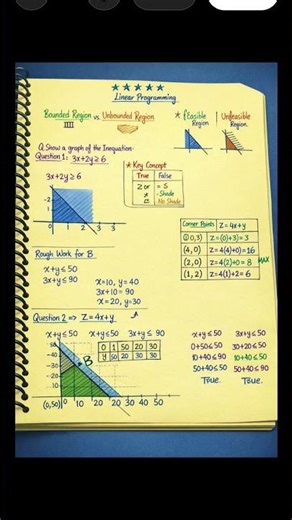 ★★★★★
Linear Programming
Bounded Region vs Unbounded Region
* feasible Region
Unfeasible Region
Q. Show a graph of the Inequation
Question 1: 3x+2y≥6
3x+2y≥6
* Key Concept
True | False
Shade
No Shade
2
1
0 1 2 3
Corner Points | Z=4x+y
(0,3) | Z=(0)+3)=3
(4,0) | Z=4(4)+0)=16
(2,0) | Z=4(2)+0=8 MAX
(1,2) | Z=4(1)+2=6
Rough Work for B
x+y≤50
3x+y≤90
x=10, y=40
3x+10=90
x=20, y=30
Question 2 ⇒ Z=4x+y
x+y≤50 x+y≤50 3x+y≤90
0 1 50 20 30
y 50 20 30 30
50
40
30
20
B
(0,50) 0 10 20 30 40 50
x+y≤50 3x+y≤50
0+50≤50 30+20≤50
10+40≤90 10+40≤90
50+40≤50 50+40≤90
True. True.